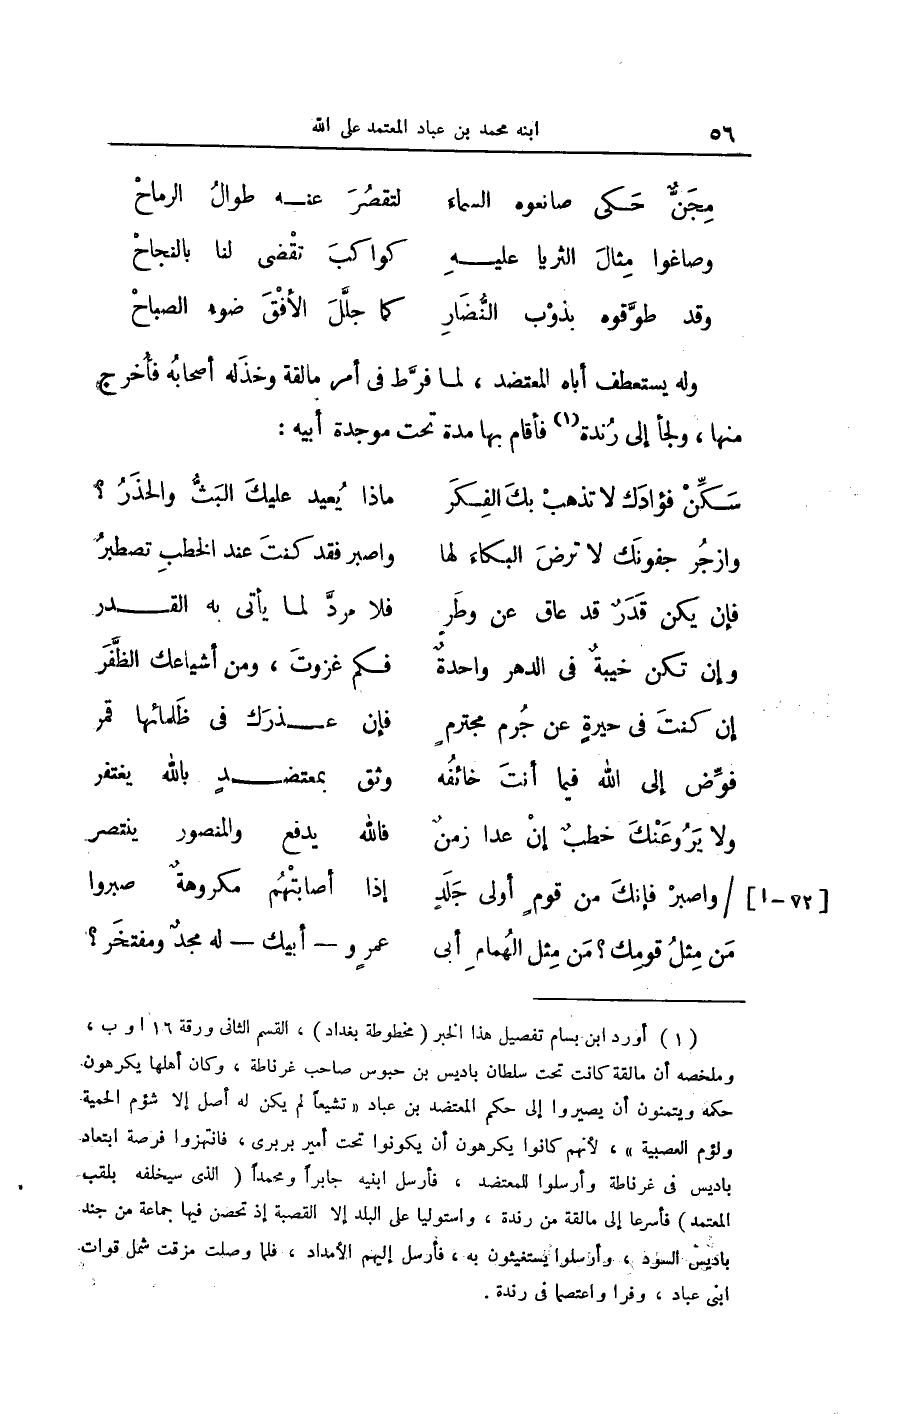 ٥٦ ابنه محمد بن عباد المعتمد على الله
مِجَنٌّ حَـكى صانعوه السماء لتقصُرَ عنـــه طوالُ الرماحْ
وصاغوا مِثالَ الثريا عليــــهِ كواكبَ تقْضى لنا بالنجاحْ
وقد طوَّقوه بذوْب النُّضَارِ كما جلَّلَ الأفْقَ ضوء الصباحْ
وله يستعطف أباه المعتضد ، لمـا فرَّط فى أمر مالقة وخذَله أصحابُه فأُخرج
منها ، ولجأ إلى رُندة(١) فأقام بها مدة تحت موجدة أبيه :
سَـكِّنْ فؤادَك لا تذهبْ بكَ الفِـكَر ماذا يُعيد عليكَ البَثُّ والحذَرُ ؟
وازجُر جفونَك لا ترضَ البـكاء لها واصبر فقد كنتَ عند الخطبِ تصطبرُ
فإن يكن قَدَرٌ قد عاق عن وطَرٍ فلا مردَّ لمـا يأتى به القـــــدر
وإن تكن خيبةٌ فى الدهر واحدةٌ فـكم غزوتَ ، ومن أشياعك الظَّفَر
إن كنتَ فى حيرةٍ عن جُرم مجترمٍ فإن عـــذرَك فى ظَلمائها قمر
فوِّض إلى الله فيما أنتَ خائفُه وثق بمعتضـــــدٍ بالله يغتفر
ولا يَرُوعَنْكَ خطبٌ إنْ عدا زمنٌ فالله يدفع والمنصور ينتصر
[٧٢ – ا] / واصبرْ فإنكَ من قومٍ أولى جَلَدٍ إذا أصابتْهُم مكروهةٌ صبروا
مَن مِثلُ قومِك ؟ مَن مِثل الهُمامِ أبى عمرٍو – أبيك – له مجدٌ ومفتخَر ؟
( ١ ) أورد ابن بسام تفصيل هذا الخبر ( مخطوطة بغداد ) ، القسم الثانى ورقة ١٦ ا و ب ،
وملخصه أن مالقة كانت تحت سلطان باديس بن حبوس صاحب غرناطة ، وكان أهلها يكرهون
حكمه ويتمنون أن يصيروا إلى حكم المعتضد بن عباد « تشيعاً لم يكن له أصل إلا شؤم الحمية
ولؤم العصبية » ، لأنهم كانوا يكرهون أن يكونوا تحت أمير بربرى ، فانتهزوا فرصة ابتعاد
باديس فى غرناطة وأرسلوا للمعتضد ، فأرسل ابنيه جابراً ومحمداً ( الذى سيخلفه بلقب
المعتمد ) فأسرعا إلى مالقة من رندة ، واستوليا على البلد إلا القصبة إذ تحصن فيها جماعة من جند
باديس السود ، وأرسلوا يستغيثون به ، فأرسل إليهم الأمداد ، فلما وصلت مزقت شمل قوات
ابنى عباد ، وفرا واعتصما فى رندة .